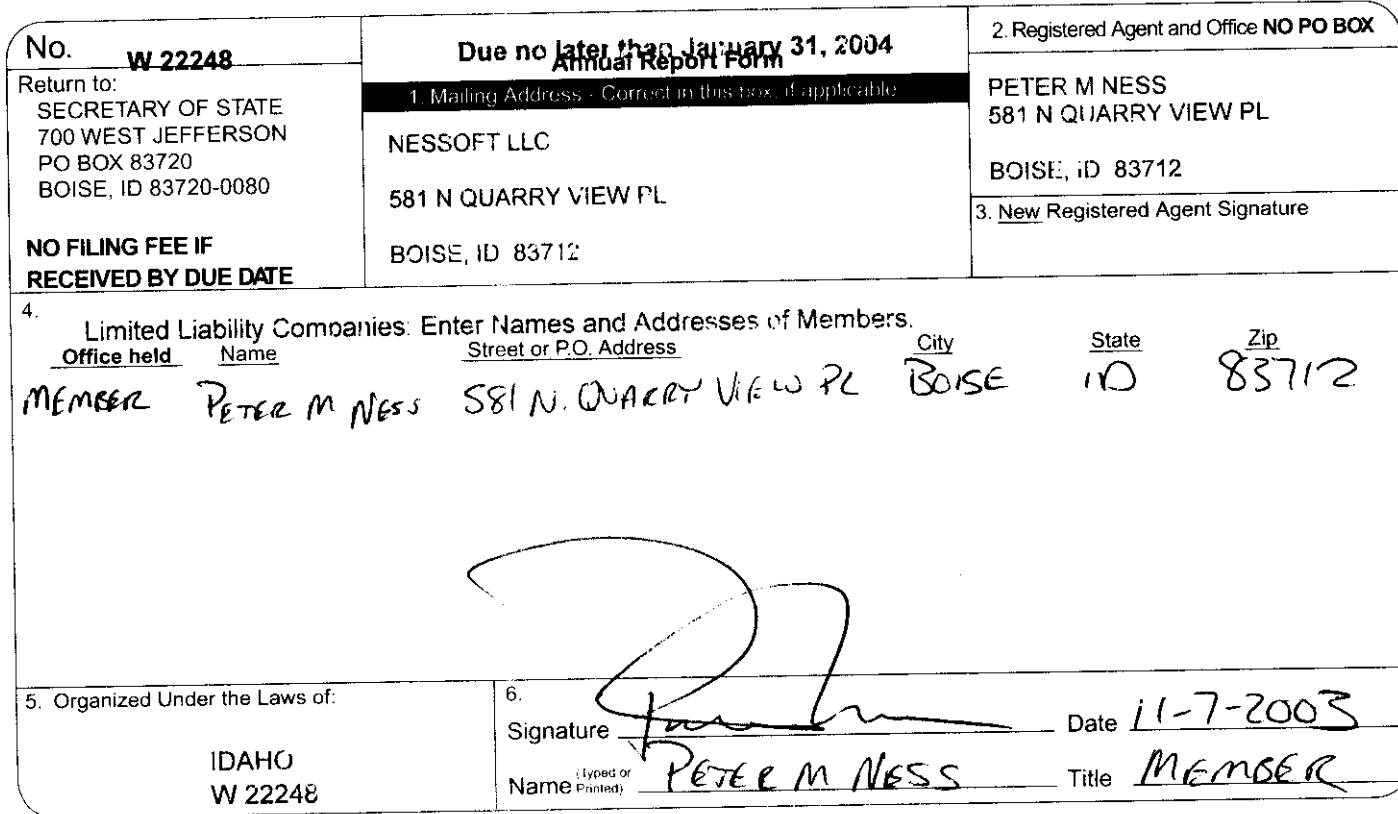 No. W 22248
Return to:
SECRETARY OF STATE
700 WEST JEFFERSON
PO BOX 83720
BOISE, ID 83720-0080
NO FILING FEE IF
RECEIVED BY DUE DATE
Due no later than January 31, 2004
Annual Report Form
1. Mailing Address - Correct in this box, if applicable
NESSOFT LLC
581 N QUARRY VIEW PL
BOISE, ID 83712
2. Registered Agent and Office NO PO BOX
PETER M NESS
581 N QUARRY VIEW PL
BOISE, ID 83712
3. New Registered Agent Signature
4.
Limited Liability Companies: Enter Names and Addresses of Members.
Office held Name Street or P.O. Address City State Zip
MEMBER PETER M NESS 581 N. QUARRY VIEW PL BOISE ID 83712
5. Organized Under the Laws of:
IDAHO
W 22248
6.
Signature Date 11-7-2003
Name (Typed or Printed) PETER M NESS Title MEMBER